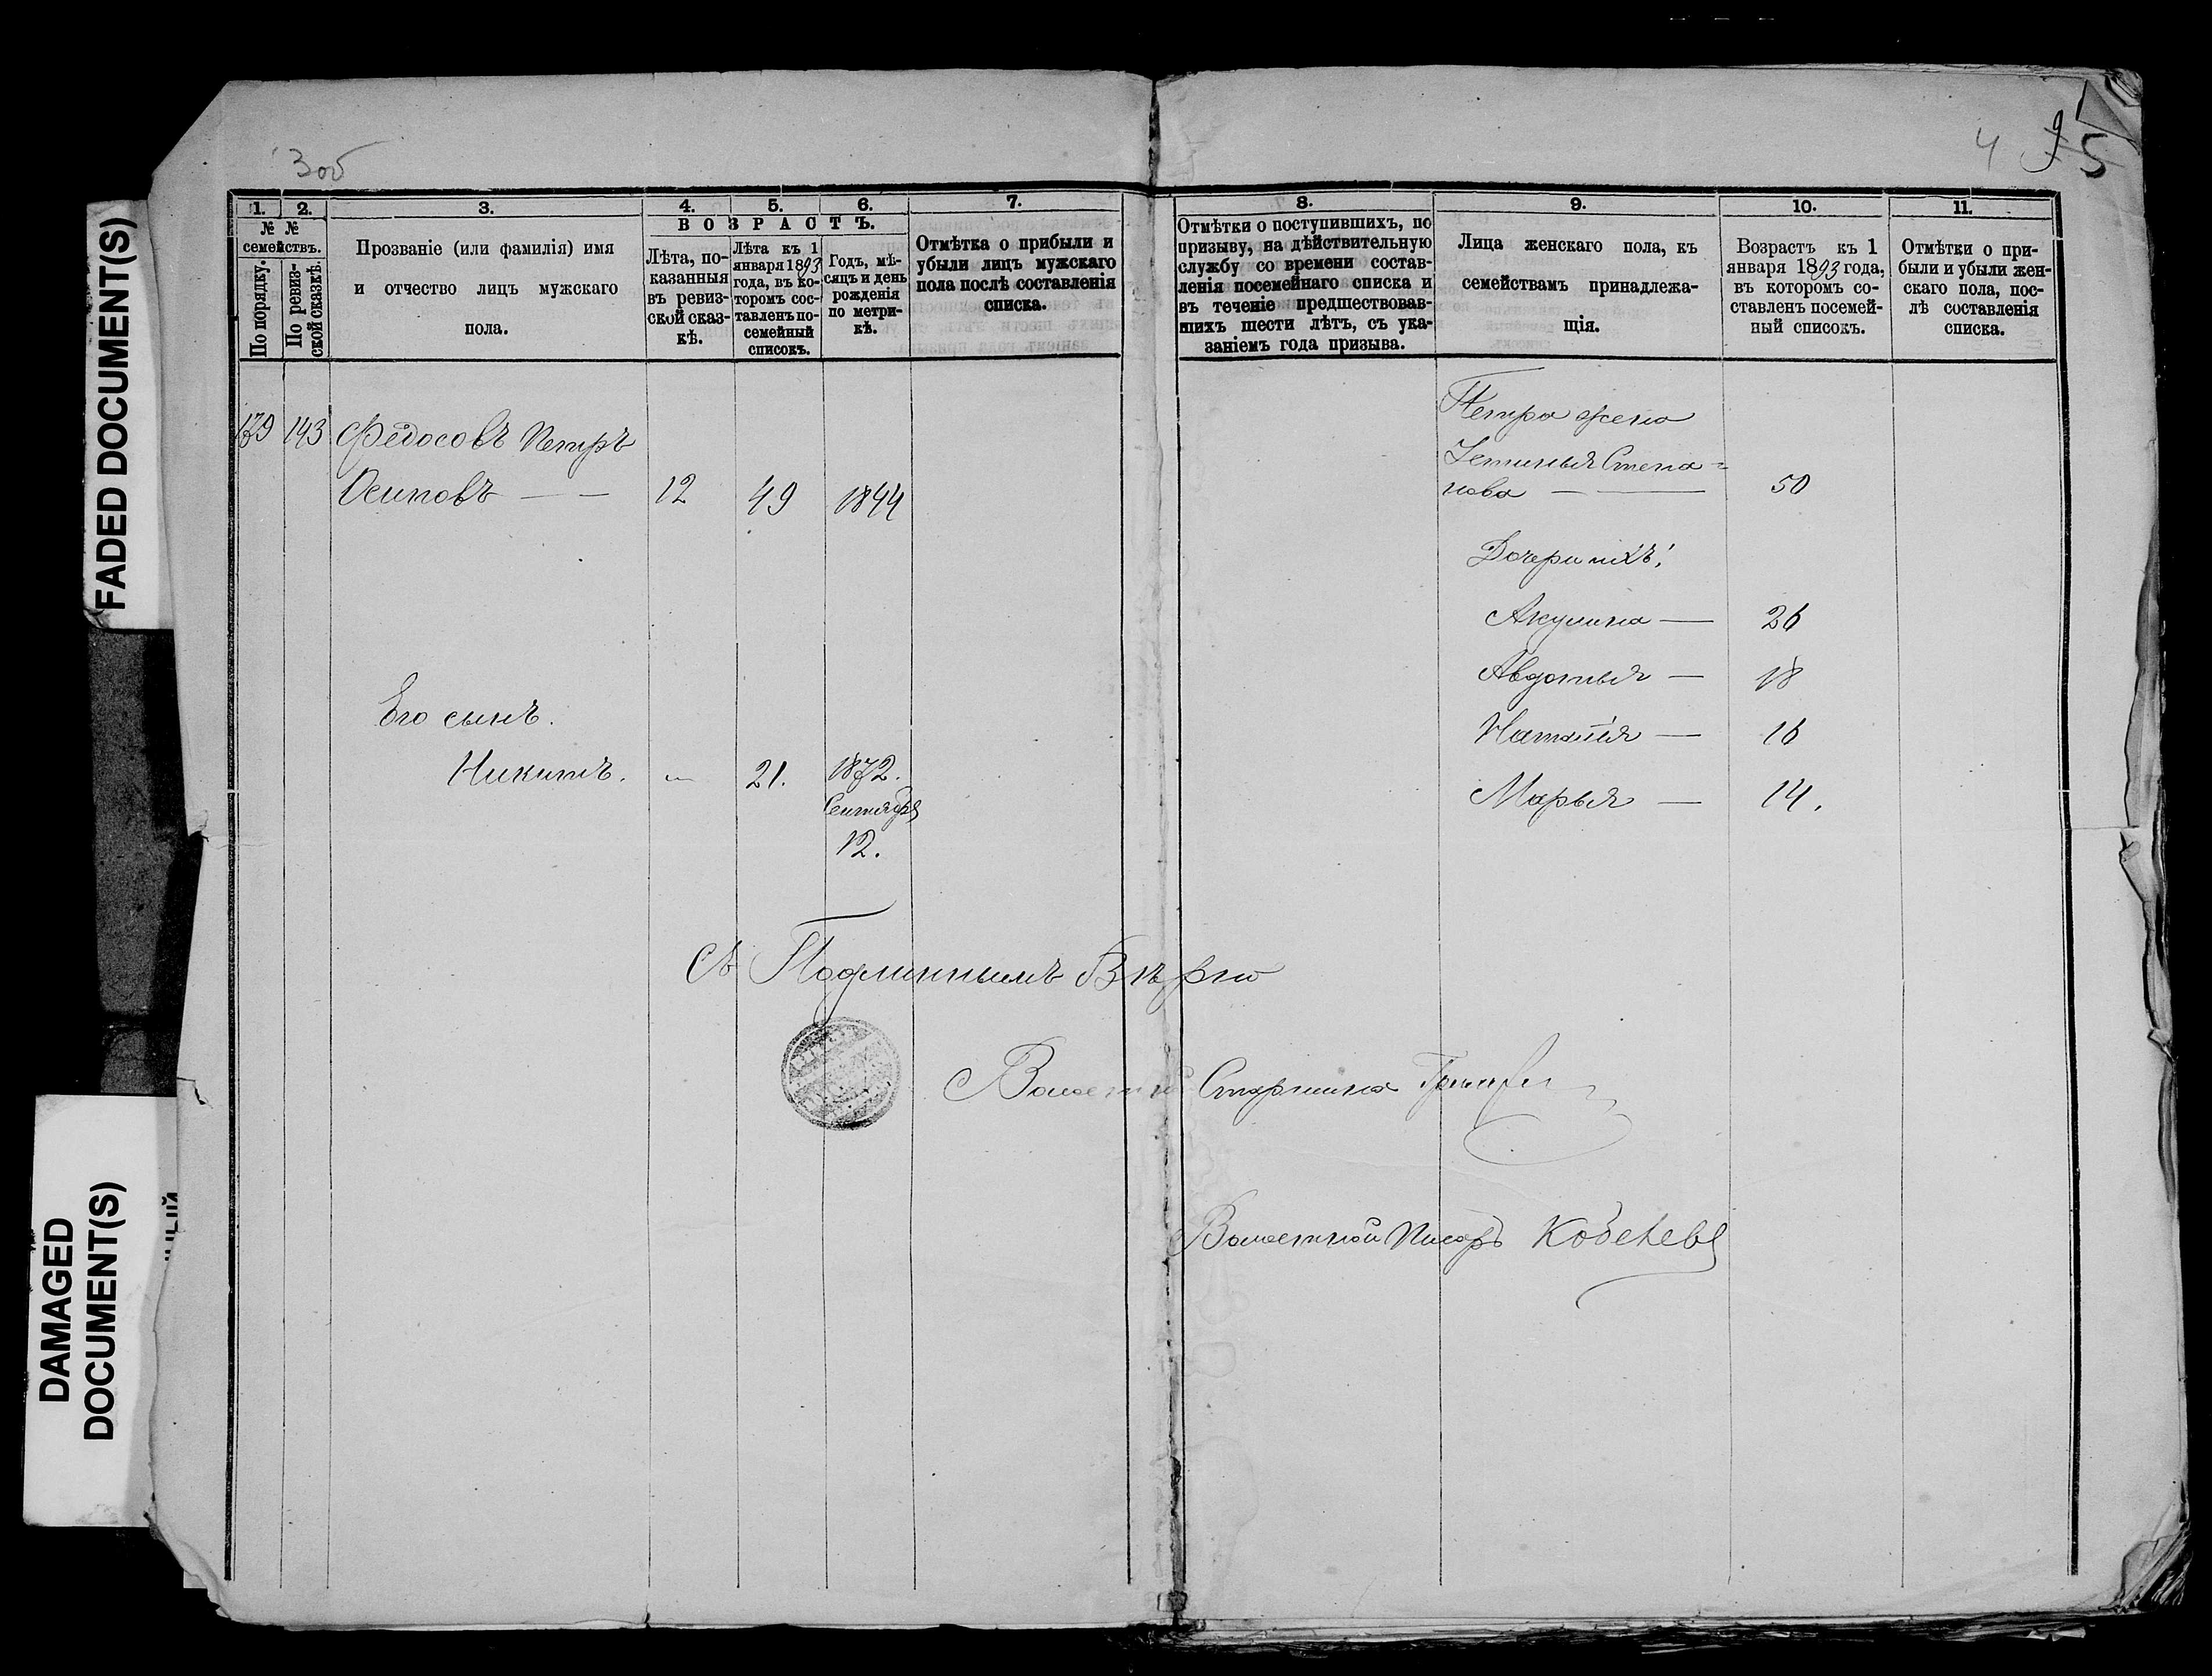 FADED DOCUMENT(S)
DAMAGED
DOCUMENT(S)
3об
4 5
1.
2.
3.
4.
5.
6.
7.
№ №
семействъ.
По порядку.
По ревиз-
ской сказкѣ.
Прозваніе (или фамилія) имя
и отчество лицъ мужскаго
пола.
ВОЗРАСТЪ.
Лѣта, по-
казанныя
въ ревиз-
ской сказ-
кѣ.
Лѣта къ 1
января 1893
года, въ ко-
торомъ сос-
тавленъ по-
семейный
списокъ.
Годъ, мѣ-
сяцъ и день
рожденія
по метри-
кѣ.
Отмѣтка о прибыли и
убыли лицъ мужскаго
пола послѣ составленія
списка.
8.
9.
10.
11.
Отмѣтки о поступившихъ, по
призыву, на дѣйствительную
службу со времени состав-
ленія посемейнаго списка и
въ теченіе предшествовав-
шихъ шести лѣтъ, съ ука-
заніемъ года призыва.
Лица женскаго пола, къ
семействамъ принадлежа-
щія.
Возрастъ къ 1
января 1893 года,
въ которомъ со-
ставленъ посемей-
ный списокъ.
Отмѣтки о при-
были и убыли жен-
скаго пола, пос-
лѣ составленія
списка.
139 143 Федосовъ Петръ
Осиповъ — — 12 49 1844
Его сынъ.
Никита. — 21. 1872.
Сентября
12.
Петра жена
Устинья Степа=
нова — — 50
Дочери ихъ:
Акулина — 26
Авдотья — 18
Наталія — 16
Марья — 14.
Съ Подлиннымъ Вѣрно
Волостной Старшина
Волостной Писарь Кобелевъ